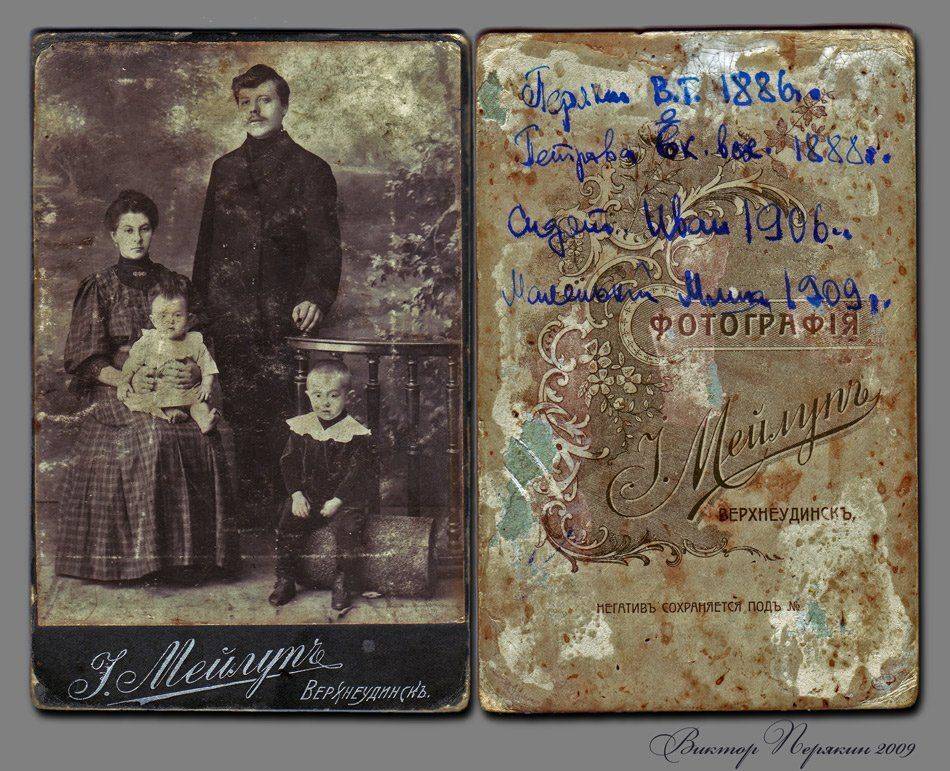 І. Мейлупъ
Верхнеудинскъ.
Перякин В.Т. 1886г.
Петрова Ек. 1888г.
Сидит. Иван 1906г.
Маленький 1909г.
ФОТОГРАФІЯ
І. Мейлупъ
ВЕРХНЕУДИНСКЪ,
НЕГАТИВЪ СОХРАНЯЕТСЯ ПОДЪ №
Виктор Перякин 2009